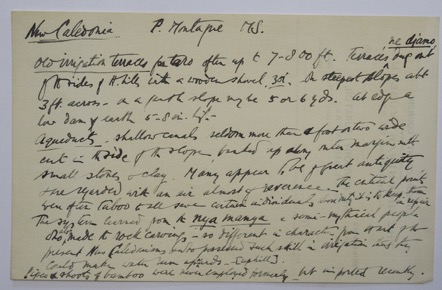 New Caledonia P. Montague MS.
ne djamo
old irrigation terraces for taro often up to 7-800 ft. Terraces dug out
of the sides of the hills with a wooden shovel, On steepest slopes abt
3 ft. across - on a gentle slope may be 5 or 6 yds. At edge a
low dam of earth 6-8 in. high -
Aqueducts - shallow canals seldom more than a foot or two wide
cut in the side of the slope, banked up along outer margin with
small stones & clay. Many appear to be of great antiquity
& are regarded with an air almost of reverence - the critical points
were often taboo to all save certain individuals it is to keep them in repair
The system learned from the nya manga a semi-mythical people
who also made the rock carvings - so different in character from the art of the
present New Caledonians, who possessed such skill in irrigation that they
could make water run upwards - [uphill].
Pipes & shoots of bamboo were never employed formerly but imported recently.